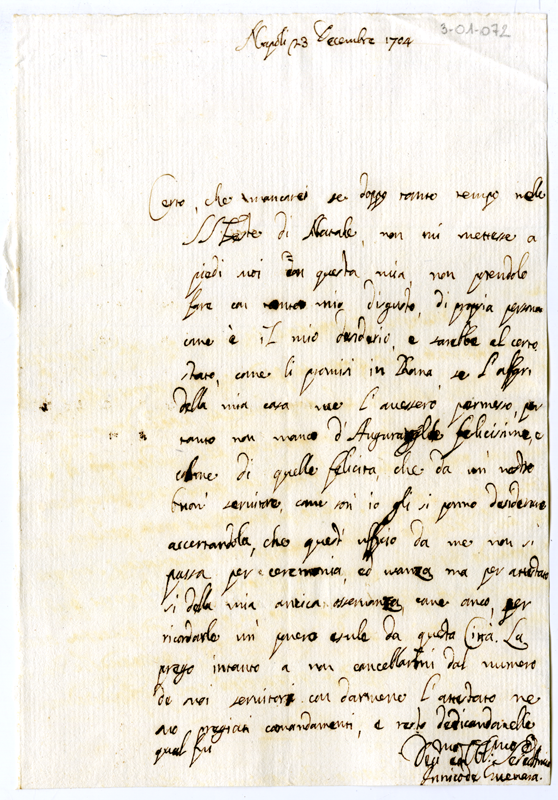 3-01-072
Napoli 23 Decembre 1704
Certo, che mancarei se doppo tanto tempo nelle
SS. Feste di Natale, non mi mettesse a
piedi suoi con questa mia, non potendolo
fare con mio disgusto, di propria persona
come è il mio desiderio, e sarebbe al certo
stato, come li promisi in Roma, se l'affari
della mia casa me l'avessero permesso, per
tanto non manco d'Augurargliele felicissime, e
colme di quelle felicità, che da un
buon servitore, come son io gli si ponno desiderare
accertandola, che quest'ufficio da me non si
passa per ceremonia, ed usanza ma per attestato
si della mia antica osservanza come anco, per
ricordarle un povero esule da questa Città. La
prego intanto a non cancellarmi dal numero
de suoi servitori con darmene l'attestato ne
suo pregiati comandamenti, e resto dedicandomelle
qual fui
Innico de Guevara.